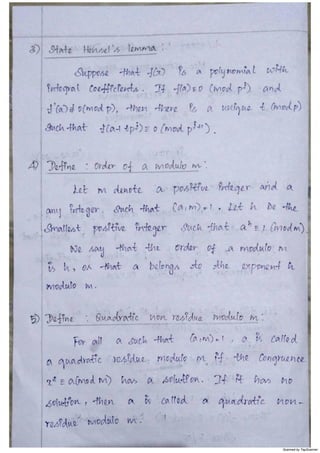 3) State Hensel's lemma :
Suppose that f(x) is a polynomial with
integral coefficients. If f(a) ≡ 0 (mod p^j) and
f'(a) ≢ 0 (mod p), then there is a unique t (mod p)
such that f(a + tp^j) ≡ 0 (mod p^{j+1}).
4) Define : order of a modulo m :
Let m denote a positive integer and a
any integer such that (a, m) = 1. Let h be the
smallest positive integer such that a^h ≡ 1 (mod m).
We say that the order of a modulo m
is h, or that a belongs to the exponent h
modulo m.
5) Define : Quadratic non residue modulo m :
For all a such that (a, m) = 1, a is called
a quadratic residue modulo m if the congruence
x² ≡ a (mod m) has a solution. If it has no
solution, then a is called a quadratic non-
residue modulo m.
Scanned by TapScanner